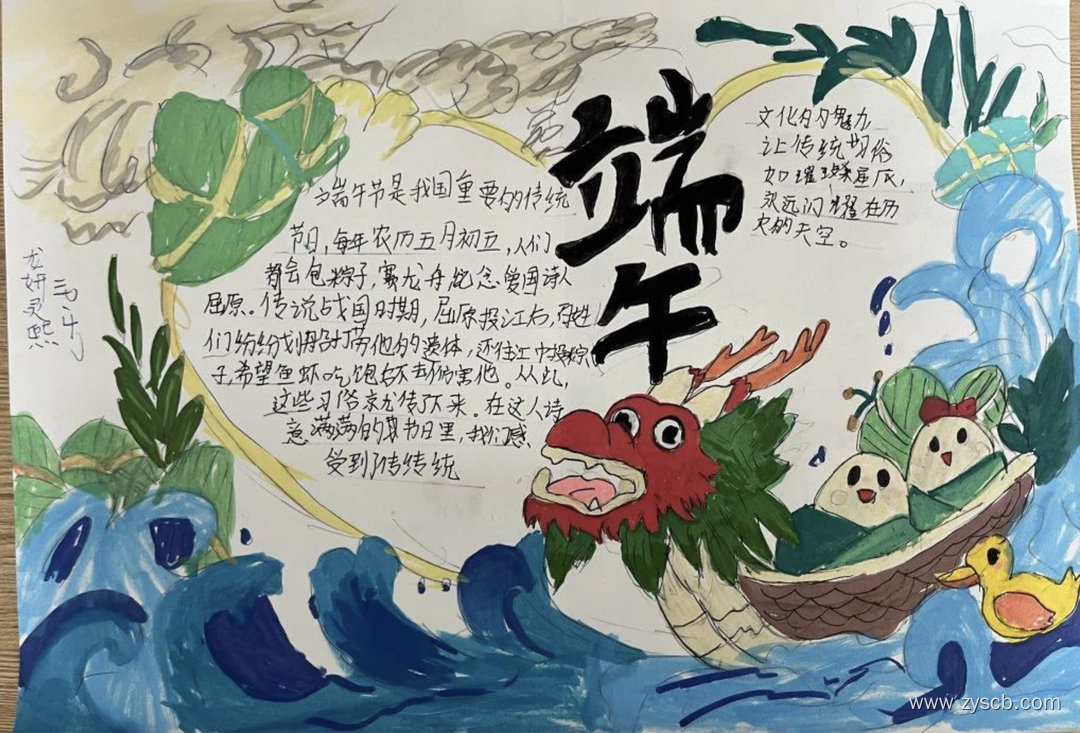 端午
端午节是我国重要的传统
节日，每年农历五月初五，人们
都会包粽子，赛龙舟纪念爱国诗人
屈原。传说战国时期，屈原投江后，百姓
们纷纷划船打捞他的遗体，还往江中投粽
子，希望鱼虾吃饱后不去伤害他。从此，
这些习俗就流传了下来。在这个诗
意满满的节日里，我们感
受到传统
文化的魅力
让传统习俗
如璀璨星辰，
永远闪耀在历
史的天空。
龙妍灵熙
www.zyscb.com